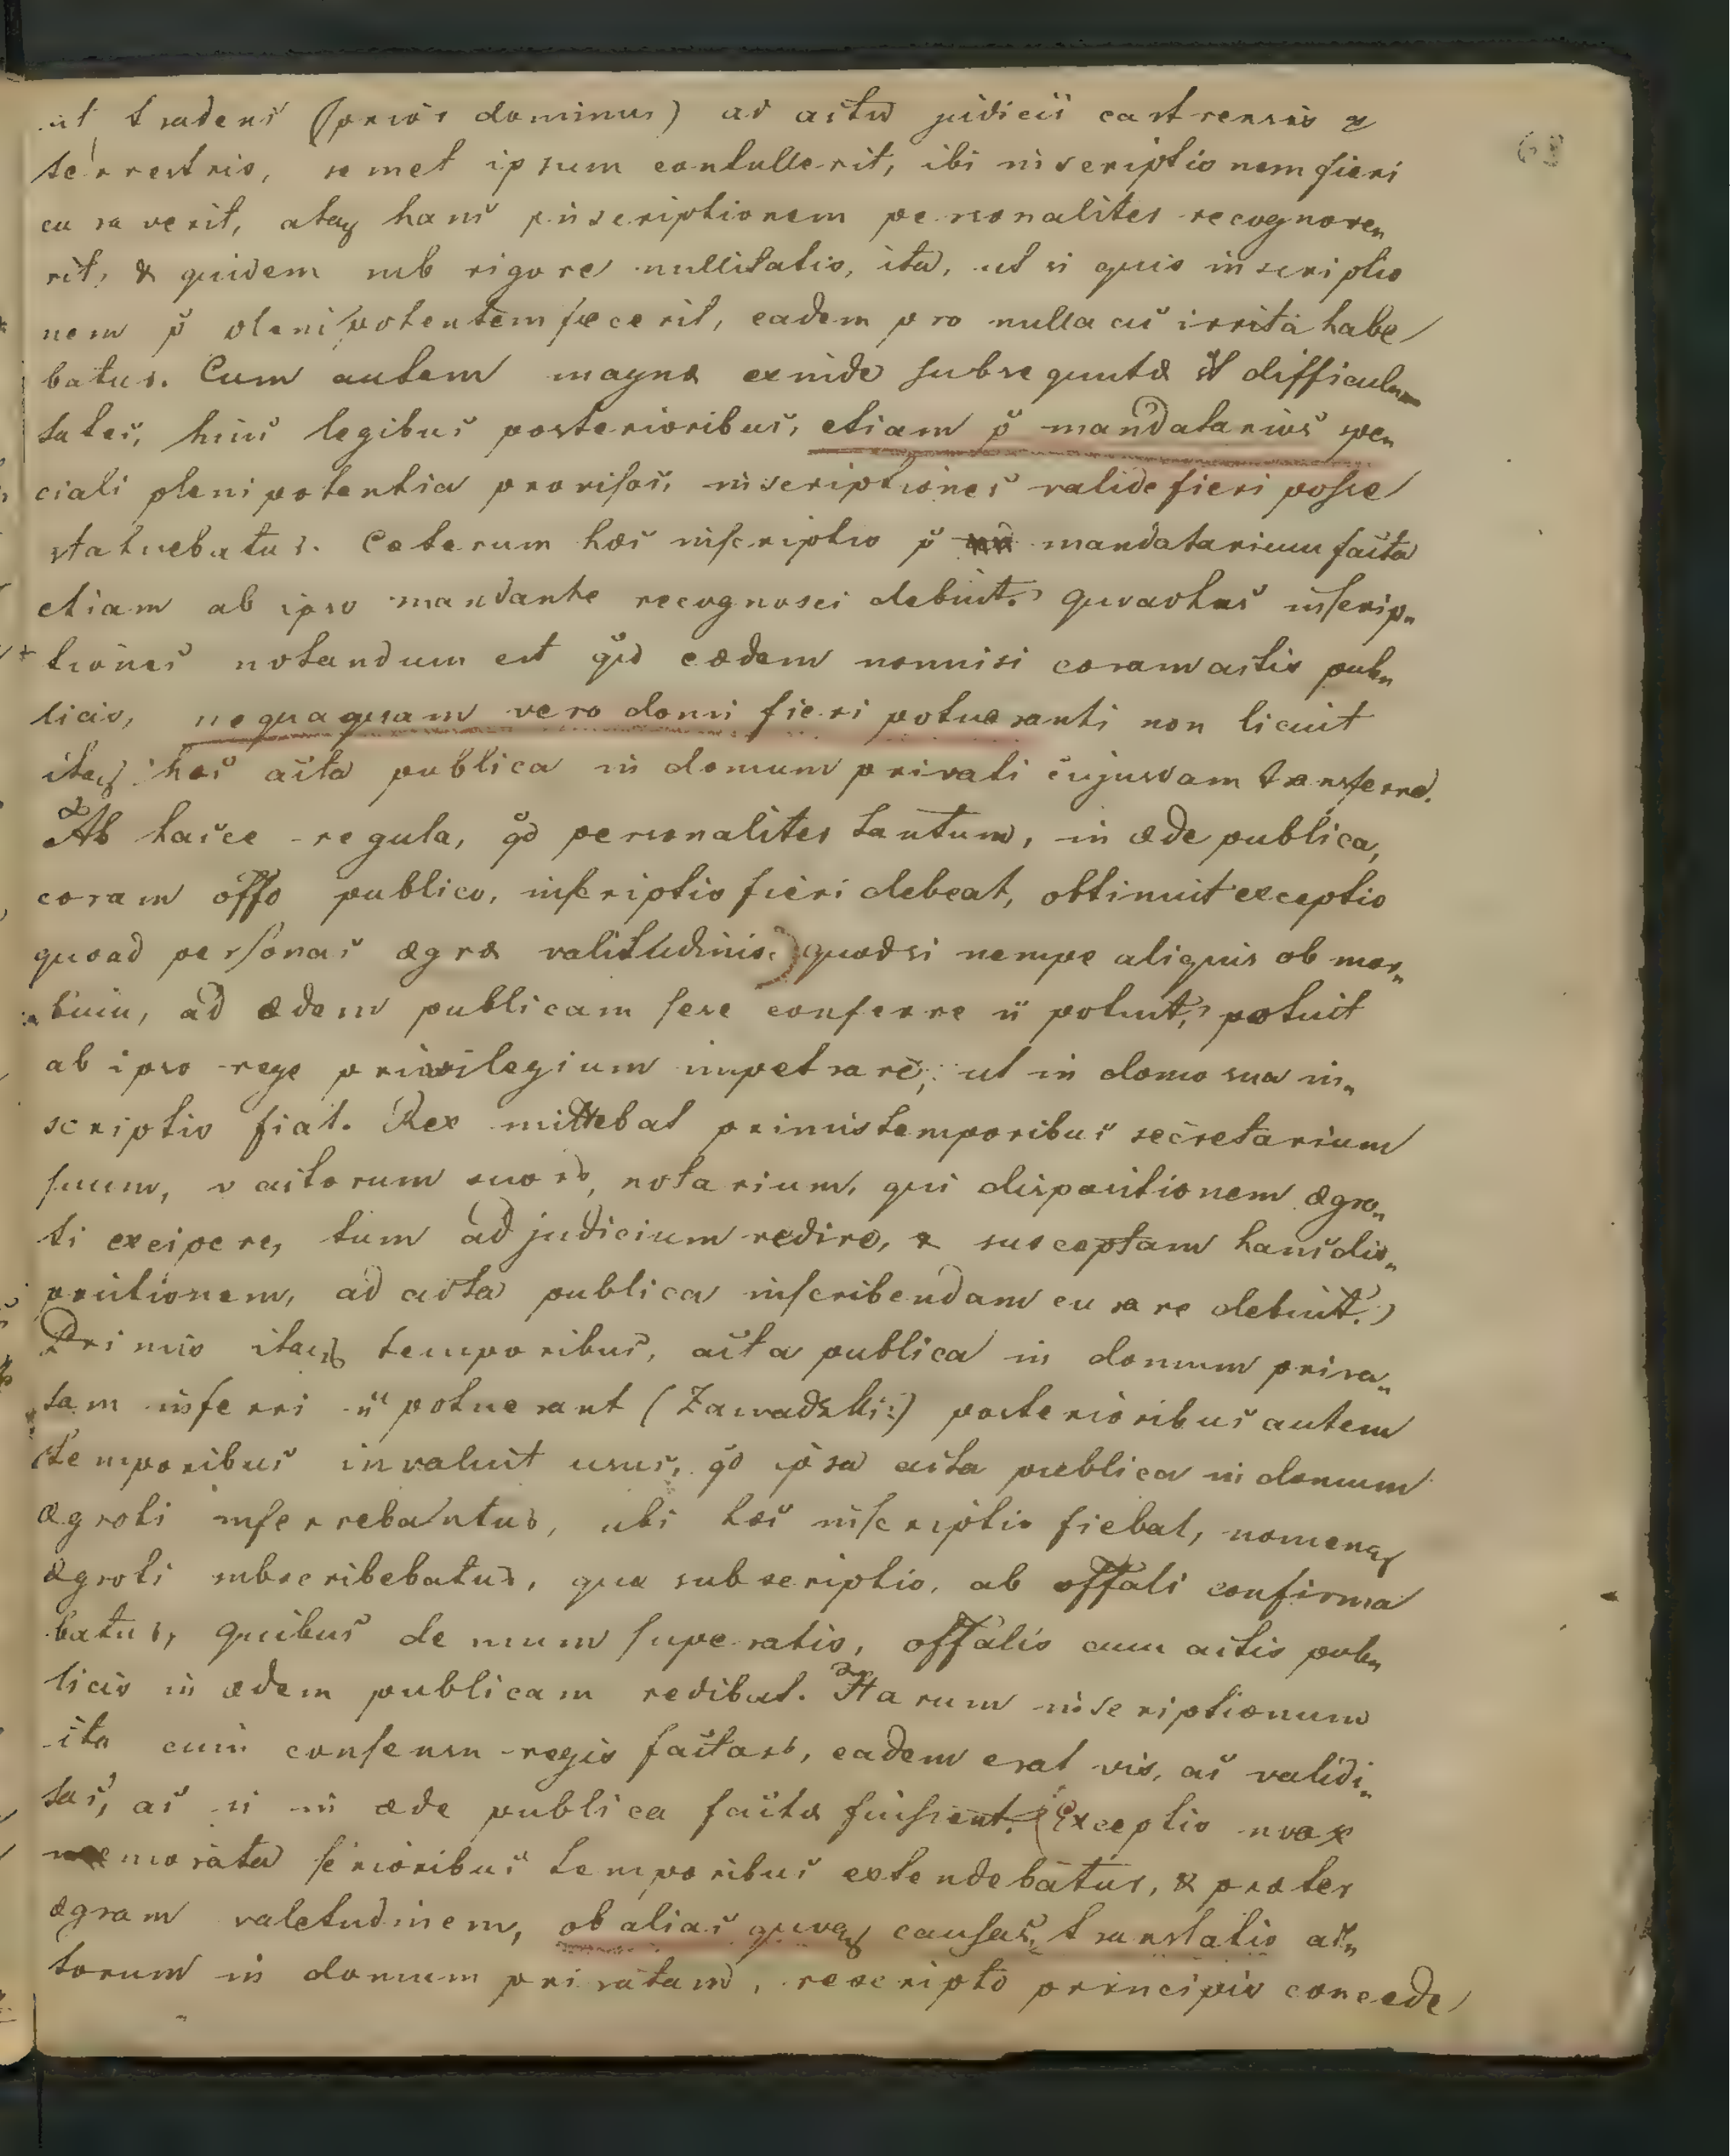 ut tradens (prior dominus) ad acta judicii castrensis &
terrestris, semet ipsum contullerit, ibi inscriptionem fieri
curaverit, atq hanc inscriptionem personaliter recognove„
rit, & quidem sub rigore nullitatis, ita, ut si quis inscriptio
nem p̃ plenipotentem fecerit, eadem pro nulla ac irrita habe
batur. Cum autem magnæ exinde subsequutæ st̃ difficul„
tates, hinc legibus posterioribus, etiam p̃ mandatarios spe„
ciali plenipotentia provisos, inscriptiones valide fieri posse
statuebatur. Ceterum hæc inscriptio p̃ mandatarium facta
etiam ab ipso mandante recognosci debuit. quoad has inscrip„
tiones notandum est qd̃ eædem nonnisi coram actis pub„
licis, nequaquam vero domi fieri potuerant; non licuit
itaq hæc acta publica in domum privati cujusdam transferre.
Ab hacce regula, qd̃ personaliter tantum, in æde publica,
coram offo publico, inscriptio fieri debeat, obtinuit exceptio
quoad personas ægræ valitudinis. quodsi nempe aliquis ob mor„
bum, ad ædem publicam sese conferre ñ potuit, potuit
ab ipso rege privilegium impetrare, ut in domo sua in„
scriptio fiat. Rex mittebat primis temporibus secretarium
suum, v actorum suorb, notarium, qui dispositionem ægro„
ti excipere, tum ad judicium redire, & susceptam hanc dis„
positionem, ad acta publica inscribendam curare debuit.)
Primis itaq temporibus, acta publica in domum priva„
tam inferri ñ potuerant (Zawadzki:) posterioribus autem
temporibus invaluit usus, qd̃ ipsa acta publica in domum
ægroti inferrebantur, ubi hæc inscriptio fiebat, nomenq
ægroti subscribebatur, quæ subscriptio, ab offali confirma
batur, quibus demum superatis, offalis cum actis pub„
licis in ædem publicam redibat. Harum inscriptionum
ita cum consensu regis factarb, eadem erat vis, ac validi„
tas, ac si in æde publica factæ fuissent. Exceptio
memorata serioribus temporibus extendebatur, & præter
ægram valetudinem, ob alias quoq causas, translatio ac„
torum in domum privatam, rescripto principis concede